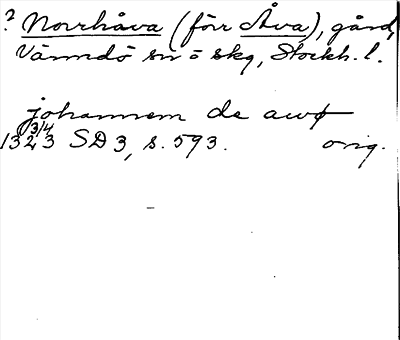 ? Norrhåva (förr Åva), gård,
Värmdö sn o skg, Stockh. l.
johannem de awø
1323 3/4 SD 3, s. 593. orig.